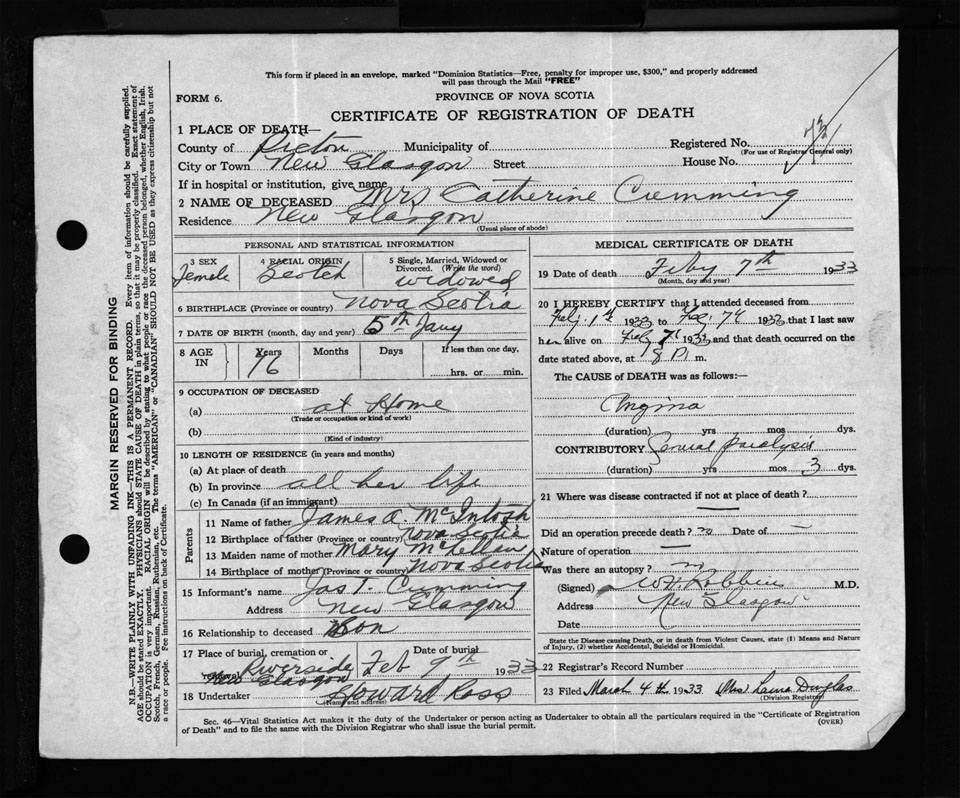 This form if placed in an envelope, marked "Dominion Statistics—Free, penalty for improper use, $300," and properly addressed
will pass through the Mail "FREE"
FORM 6.
PROVINCE OF NOVA SCOTIA
CERTIFICATE OF REGISTRATION OF DEATH
1 PLACE OF DEATH—
County of Pictou Municipality of Registered No.
(For use of Registrar General only)
City or Town New Glasgow Street House No.
If in hospital or institution, give name
2 NAME OF DECEASED Mrs Catherine Cumming
Residence New Glasgow
(Usual place of abode)
PERSONAL AND STATISTICAL INFORMATION
3 SEX 4 RACIAL ORIGIN 5 Single, Married, Widowed or
Divorced. (Write the word)
Female Scotch widowed
6 BIRTHPLACE (Province or country) Nova Scotia
7 DATE OF BIRTH (month, day and year) 5th Jany
8 AGE IN Years Months Days If less than one day.
76 hrs. or min.
9 OCCUPATION OF DECEASED
(a) at Home
(Trade or occupation or kind of work)
(b)
(Kind of industry)
10 LENGTH OF RESIDENCE (in years and months)
(a) At place of death
(b) In province all her life
(c) In Canada (if an immigrant)
Parents
11 Name of father James A. McIntosh
12 Birthplace of father (Province or country) Nova Scotia
13 Maiden name of mother Mary McLellan
14 Birthplace of mother (Province or country) Nova Scotia
15 Informant's name Jas T. Cumming
Address New Glasgow
16 Relationship to deceased Son
17 Place of burial, cremation or Date of burial
Riverside Feb 9th 1933
New Glasgow
18 Undertaker Howard Ross
(Name and address)
MEDICAL CERTIFICATE OF DEATH
19 Date of death Feby 7th 1933
(Month, day and year)
20 I HEREBY CERTIFY that I attended deceased from
1933 to 1933 that I last saw
her alive on 1933 and that death occurred on the
date stated above, at 8 P. m.
The CAUSE of DEATH was as follows:—
Angina
(duration) yrs mos dys.
CONTRIBUTORY paralysis
(duration) yrs mos 3 dys.
21 Where was disease contracted if not at place of death?
Did an operation precede death? no Date of —
Nature of operation —
Was there an autopsy?
(Signed) M.D.
Address New Glasgow
Date
State the Disease causing Death, or in death from Violent Causes, state (1) Means and Nature
of Injury, (2) whether Accidental, Suicidal or Homicidal.
22 Registrar's Record Number
23 Filed March 4th 1933 Mrs Laura Douglas
(Division Registrar)
Sec. 46—Vital Statistics Act makes it the duty of the Undertaker or person acting as Undertaker to obtain all the particulars required in the "Certificate of Registration
of Death" and to file the same with the Division Registrar who shall issue the burial permit.
(OVER)
MARGIN RESERVED FOR BINDING
N.B.—WRITE PLAINLY WITH UNFADING INK—THIS IS A PERMANENT RECORD. Every item of information should be carefully supplied.
AGE should be stated EXACTLY. PHYSICIANS should STATE CAUSE OF DEATH in plain terms, so that it may be properly classified. Exact statement of
OCCUPATION is very important. RACIAL ORIGIN will be described by stating to what people or race the deceased person belonged, whether English, Irish,
Scotch, French, German, Russian, Ruthenian, etc. The terms "AMERICAN" or "CANADIAN" SHOULD NOT BE USED as they express citizenship but not
a race or people. Fee instructions on back of Certificate.